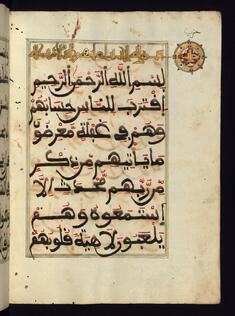 بسم الله الرحمن الرحيم
اقترب للناس حسابهم
وهم في غفلة معرضون
ما ياتيهم من ذكر
من ربهم محدث الا
استمعوه وهم
يلعبون لاهية قلوبهم